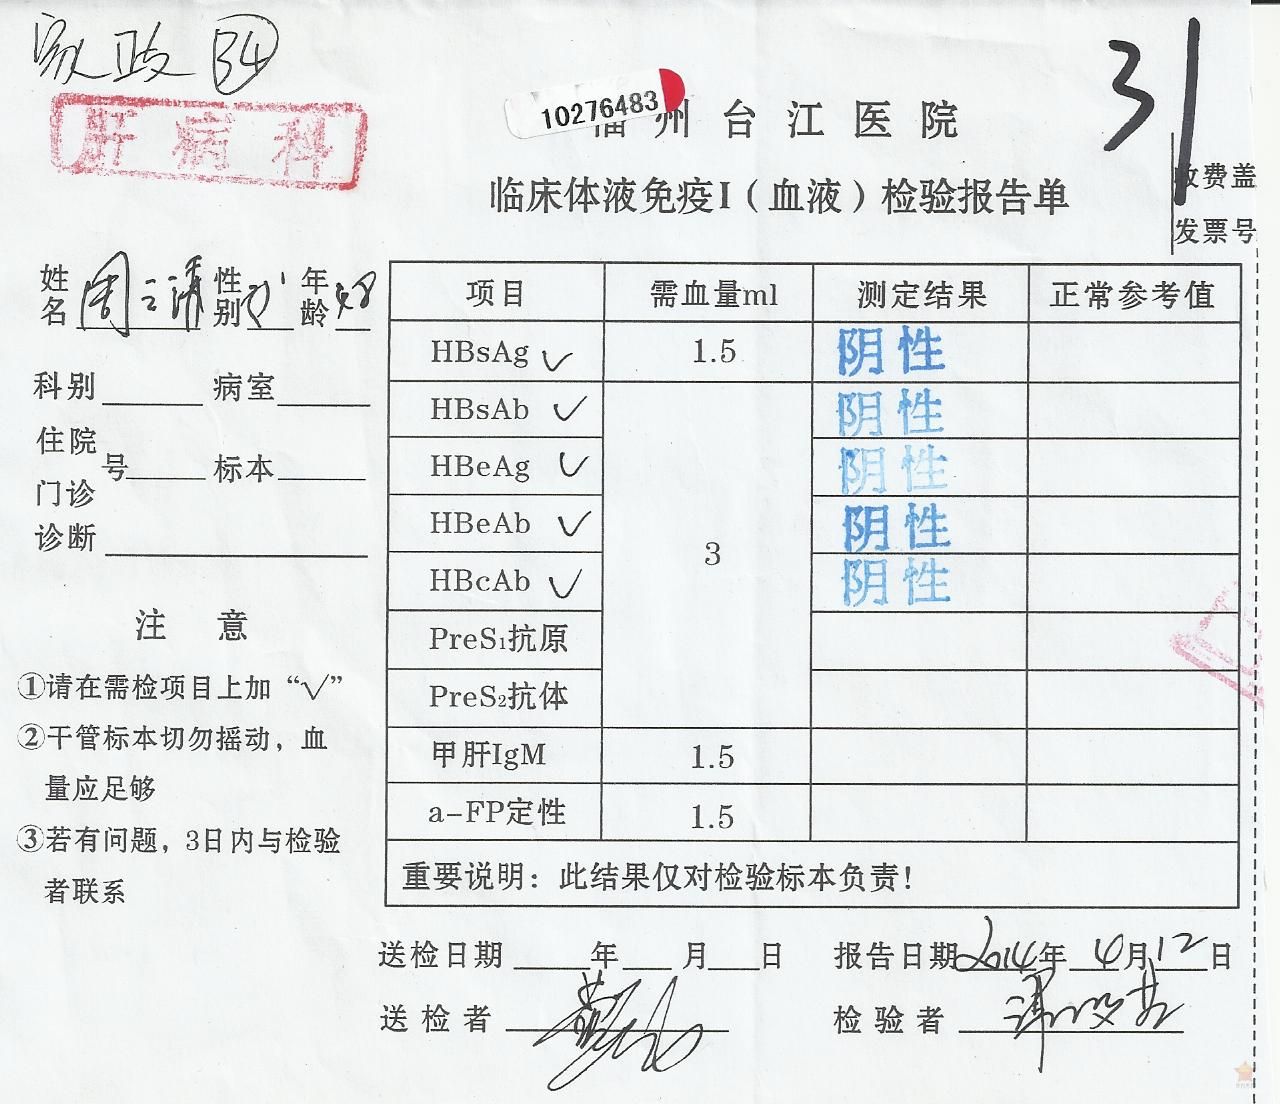 家政 34
31
肝病科
10276483
福州台江医院
临床体液免疫I（血液）检验报告单
收费盖
发票号
姓名 周 性别 女 年龄 48
科别 病室
住院
号 标本
门诊
诊断
项目 需血量ml 测定结果 正常参考值
HBsAg ✓ 1.5 阴性
HBsAb ✓ 阴性
HBeAg ✓ 阴性
HBeAb ✓ 3 阴性
HBcAb ✓ 阴性
PreS₁抗原
PreS₂抗体
甲肝IgM 1.5
a-FP定性 1.5
重要说明：此结果仅对检验标本负责！
注 意
①请在需检项目上加“√”
②干管标本切勿摇动，血
量应足够
③若有问题，3日内与检验
者联系
送检日期 年 月 日 报告日期 2014年 4月 12日
送检者 检验者